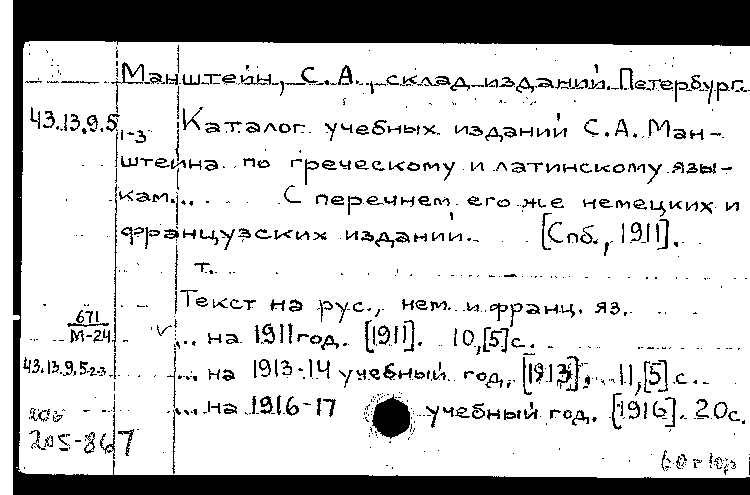 Манштейн, С.А., склад изданий Петербург.
43.13.9.5 1-3 Каталог учебных изданий С.А. Ман-
штейна по греческому и латинскому язы-
кам... С перечнем его же немецких и
французских изданий. [Спб., 1911].
т.
Текст на рус., нем. и франц. яз.
671
М-24
... на 1911 год. [1911]. 10,[5]с.
43.13.9.5 2-3 ... на 1913-14 учебный год. [1913]. 11,[5] с.
... на 1916-17 учебный год. [1916]. 20с.
205-867